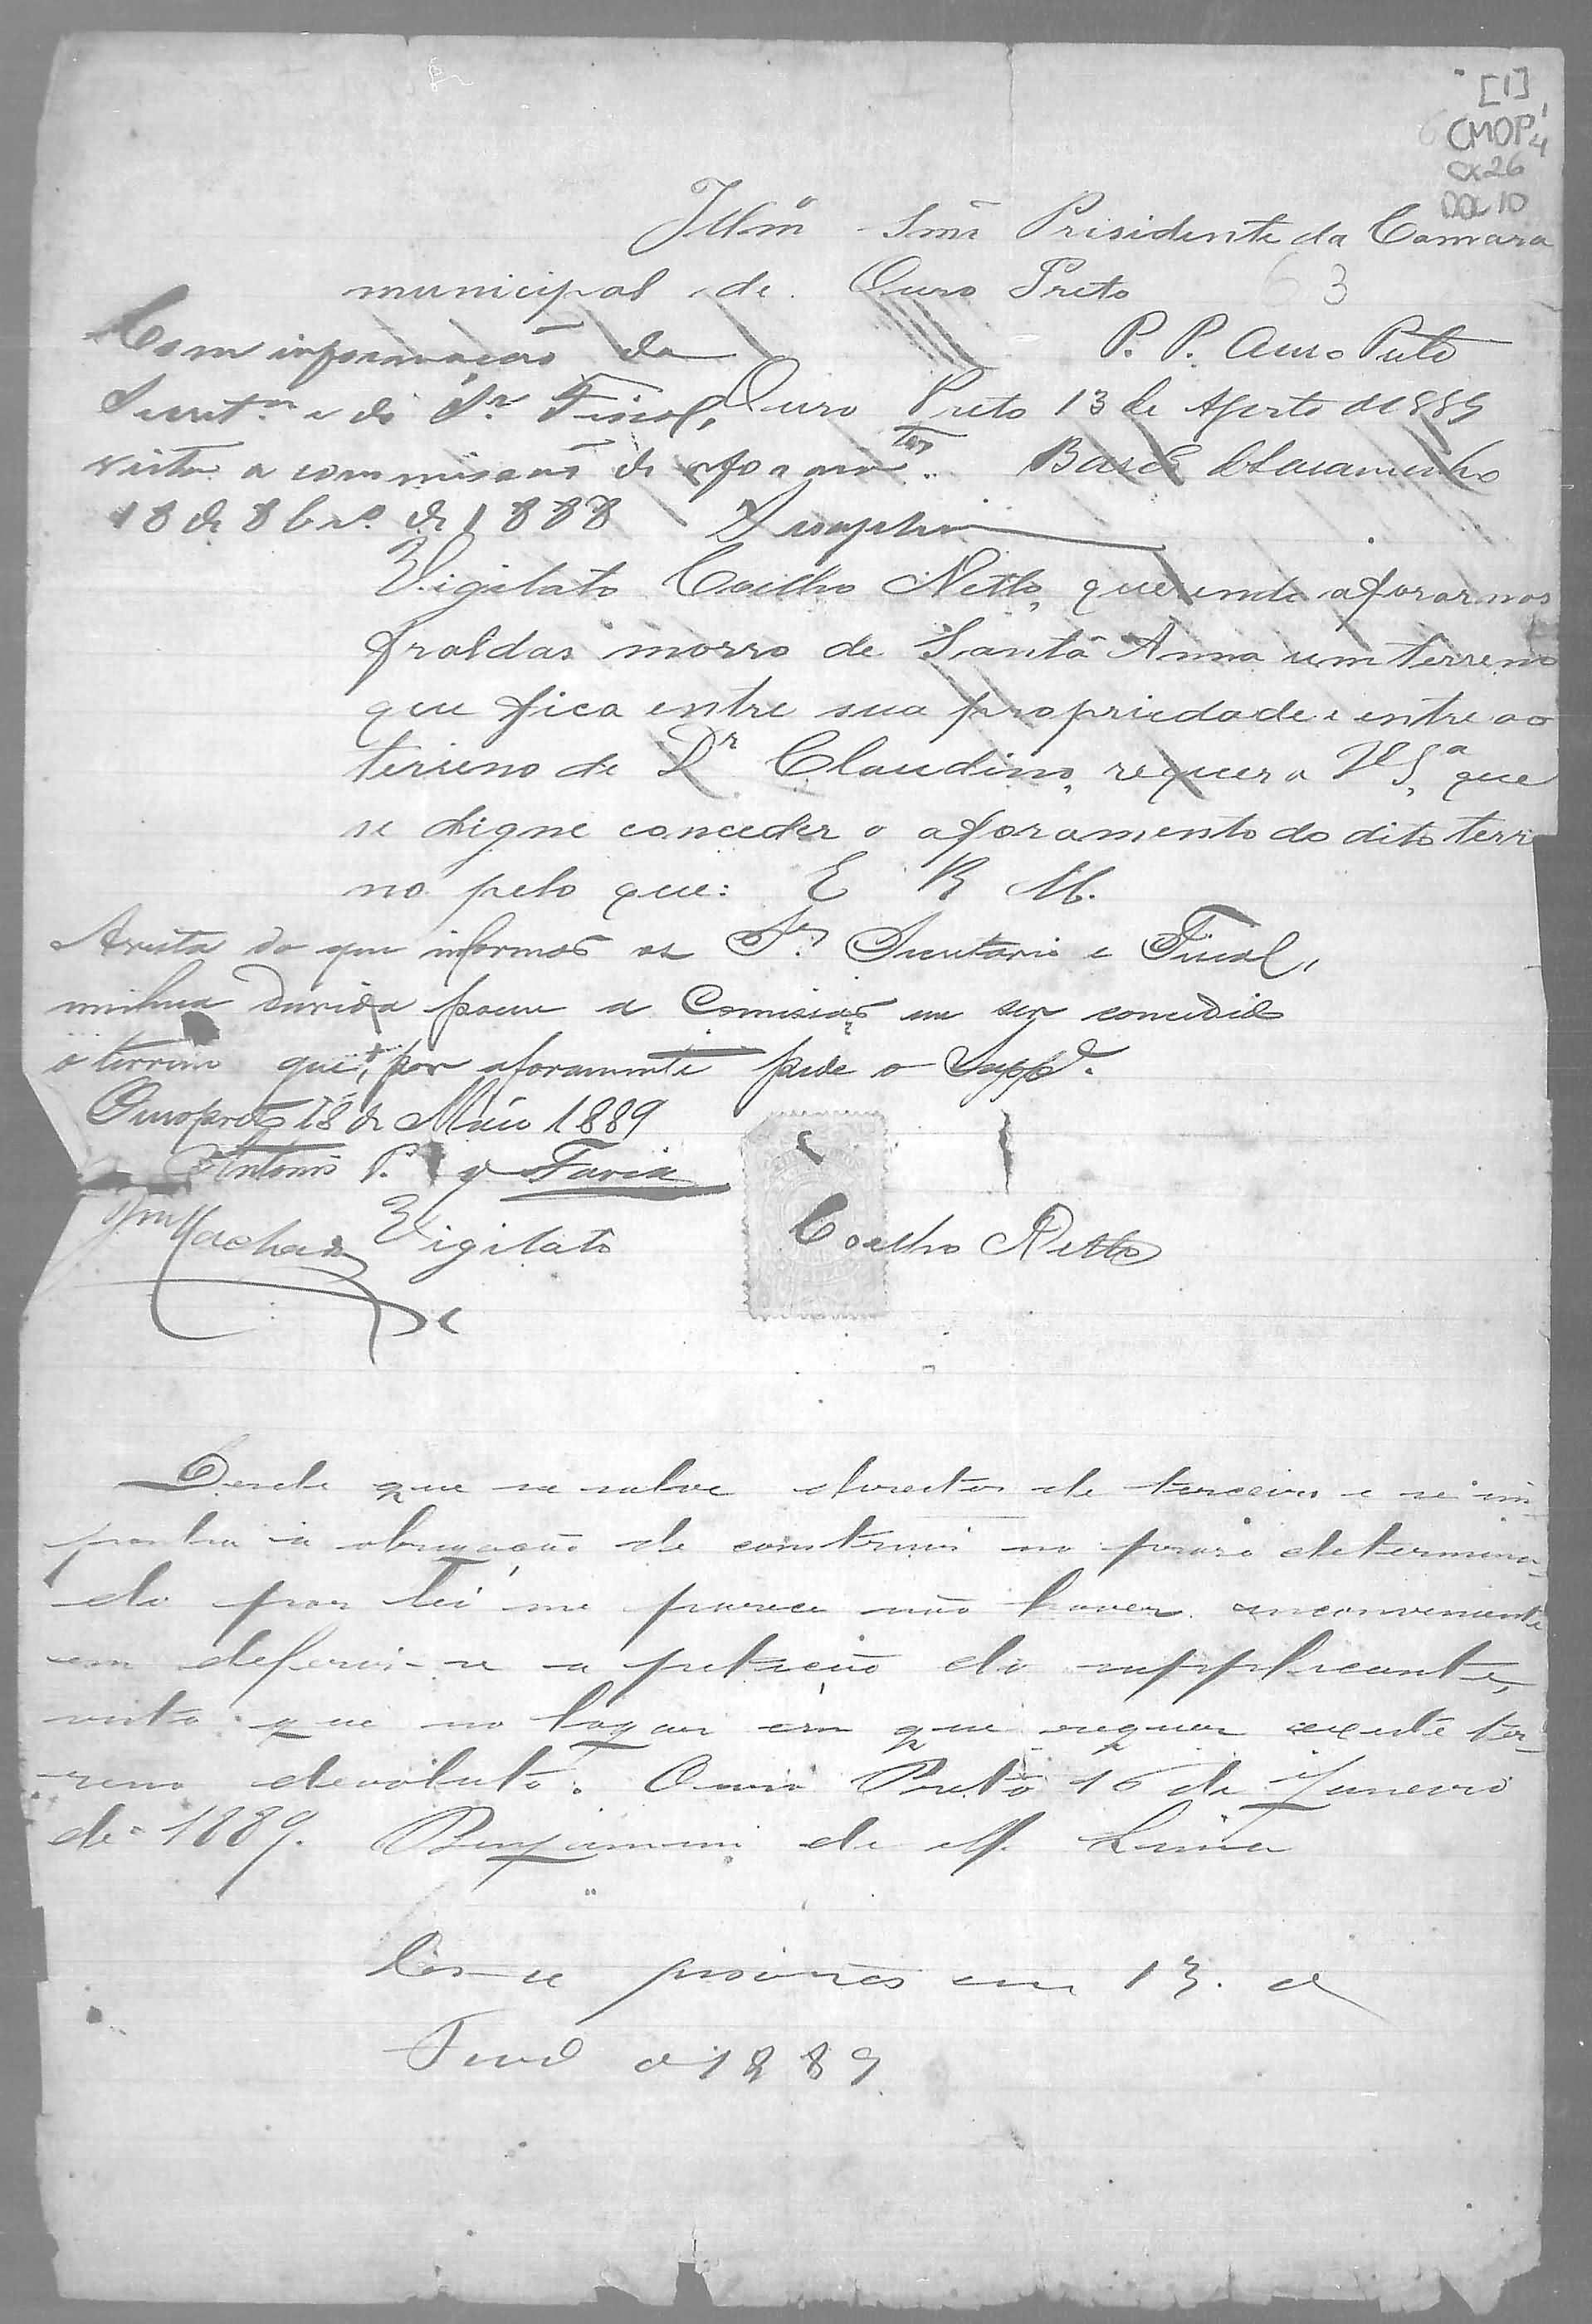 [1]
CMOP
CX 26
DOC 10
Illmº Snr Prisidente da Camara
municipal de Ouro Preto
63
Com informação da
P. P. Ouro Preto
Secretª e do Sr Fiscal,
Ouro Preto 13 de Agosto de 1889
vista a commissão de aforamtos.
18 de 8brº de 1888
Vigilato Coelho Netto, querendo aforar nas
fraldas morro de Santa Anna um terreno
que fica entre sua propriedade e entre ao
terreno de Dr Claudino, requer a V Sª que
se digne conceder o aforamento do dito terre
no pelo que: E R M.
Avista do que informão os Srs Secretario e Fiscal,
minhua duvida poem a Comissão em ser concedido
o terreno que, por aforamento pede o Suppe.
Ouro preto 18 de Maio 1889
Antonio P. Faria
Machado
Vigilato Coelho Netto
Desde que se salve direitos de terceiro e se im-
ponha a obrigação de construir no praso determina-
do por lei me parece não haver inconveniente
em deferir-se a petição do supplicante,
visto que no logar em que requer existe ter-
reno devoluto. Ouro Preto 16 de Janeiro
de 1889. Benjamim de M. Lima
em 13. d
d 1889